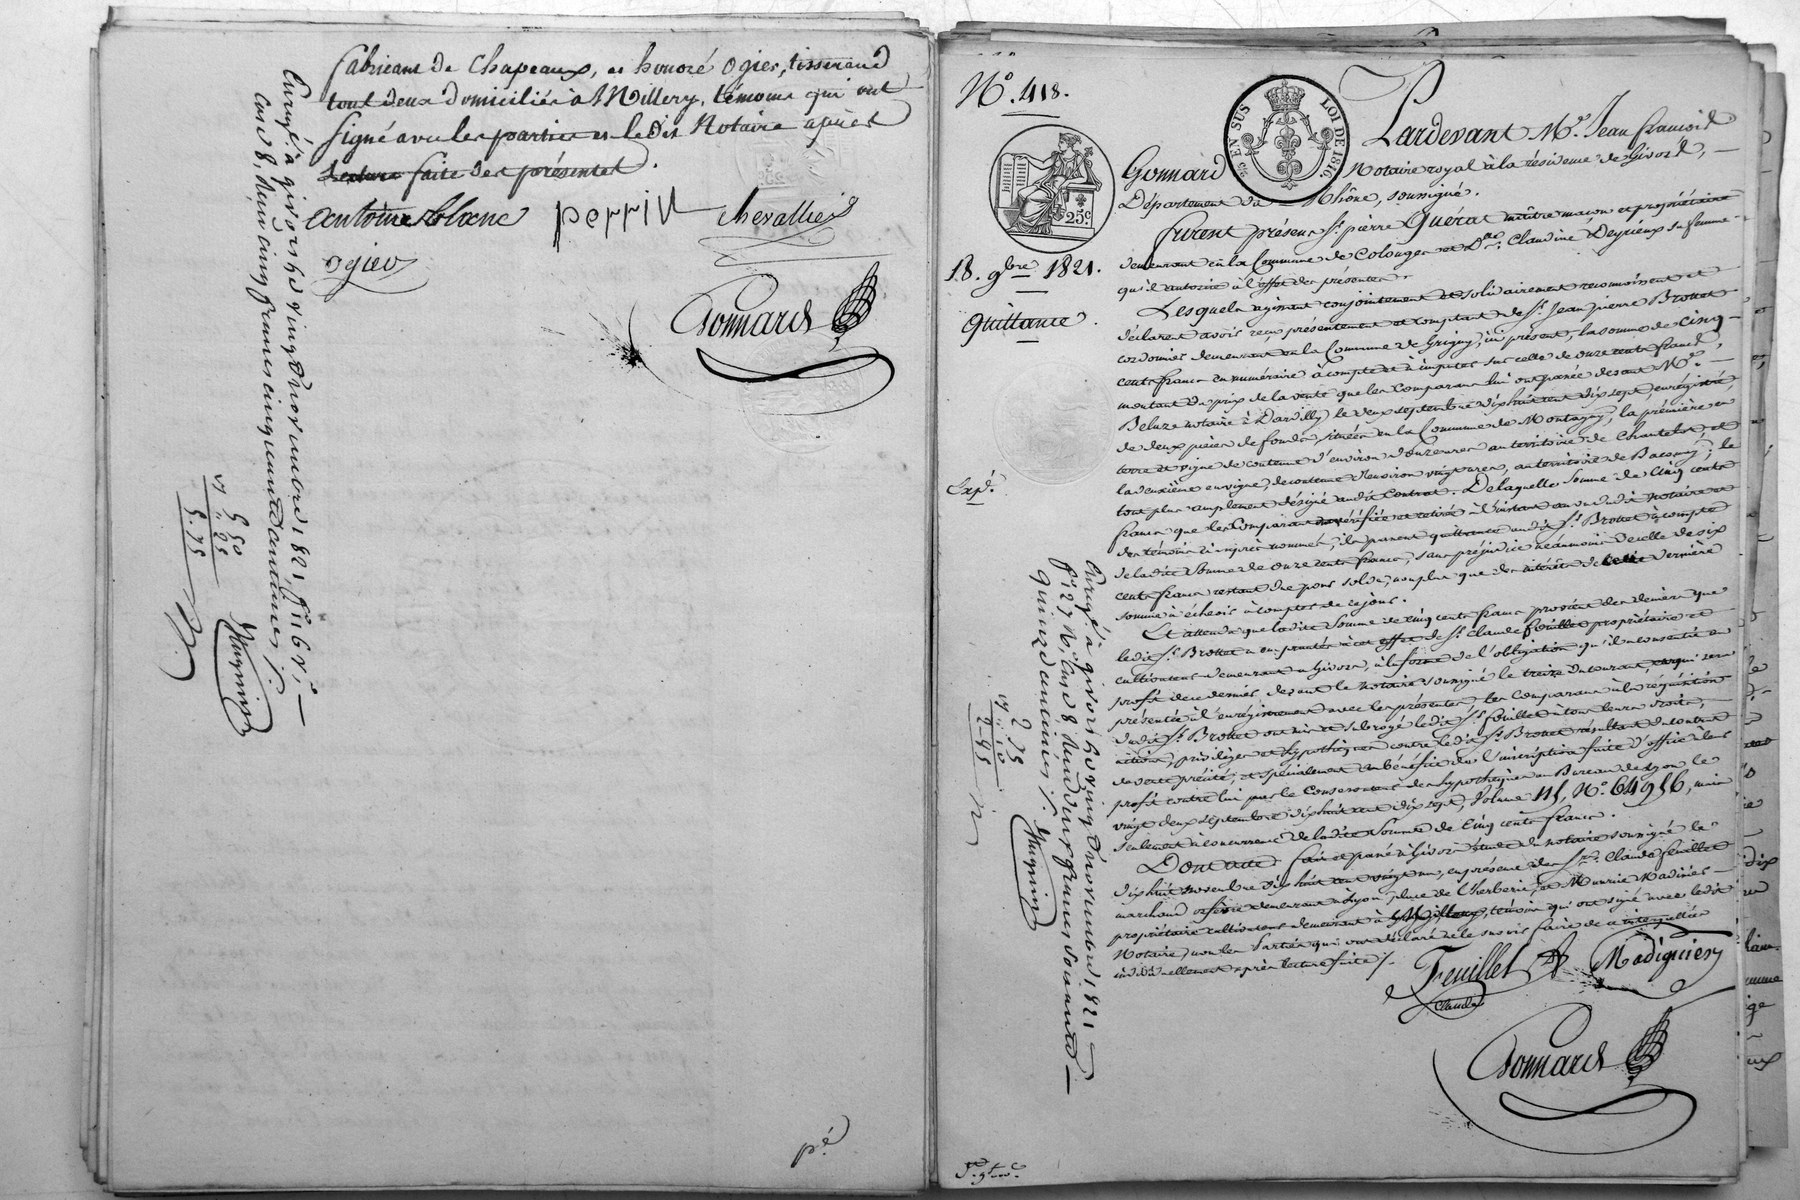 fabricant de Chapeaux, et honoré Ogier, tisserand
tout deux domiciliés à Millery, témoins qui ont
signé avec les parties et le dit Notaire après
lecture faite des présentes.
antoine blanc perrin chevallier
ogier
Gonnard
Enregté à givors le vingt novembre 1821, fo
Case 8, reçu cinq francs cinquante centimes
5 50
55
pé
No. 418.
EN SUS LOI DE 1816
25c
18. 9bre 1821.
Quittance.
Expé.
Pardevant Me. Jean françois
Gonnard Notaire royal à la résidence de Givors,
Département du Rhône, soussigné.
furent présens Sr. pierre Guerat maître maçon et propriétaire
demeurant en la Commune de Colonges et De. Claudine Deyrieux sa femme
qu'il autorise à l'effet des présentes
Lesquels agissant conjointement et solidairement reconnaissent et
déclarent avoir reçu présentement et comptant de Sr. Jean pierre Brottet
cordonnier demeurant en la Commune de Grigny, ici présent, la somme de cinq
cents francs en numéraire à compte et à imputer sur celle de onze cents francs,
montant du prix de la vente que les Comparans lui ont passée devant Me.
Beluze notaire à Dardilly, le deux septembre dix huit cent dix sept, enregistré,
de deux pièces de fonds, situées en la Commune de Montagny, la première en
terre et vigne de contenue d'environ douze ares au territoire de Chantelot et
la deuxième en vigne, de contenue d'environ vingt ares, au territoire de ; le
tout plus amplement désigné audit Contrat. De laquelle somme de Cinq cents
francs que les Comparans ont vérifiée et retirée à l'instant au vu dudit notaire et
des témoins ci après nommés, ils passent quittance audit Sr. Brottet à compte
de la dite somme de onze cents francs, sans préjudice néanmoins de celle de six
cents francs restant due pour solde, non plus que des intérêts de cette dernière
somme à échoir à compter de ce jour.
Et attendu que ladite somme de cinq cents francs provient des deniers que
ledit Sr. Brottet a empruntés à cet effet de Sr. Claude feuillet propriétaire et
cultivateur demeurant à Givors, à la forme de l'obligation qu'il a consentie au
profit de ce dernier, devant le notaire soussigné le treize du courant, et qui sera
présentée à l'enregistrement avec les présentes, les Comparans à la réquisition
dudit Sr. Brottet ont mis et subrogé ledit Sr. feuillet à tous leurs droits,
actions, privilèges et hypothèques contre ledit Sr. Brottet résultant du contrat
de vente précité; et spécialement au bénéfice de l'inscription faite d'office à leur
profit contre lui par le Conservateur des hypothèques au Bureau de Lyon le
vingt deux septembre dix huit cent dix sept, Volume 115, No. 64956, mais
seulement à concurrence de ladite somme de Cinq cents francs.
Dont acte: fait et passé à Givors étude du notaire soussigné le
dix huit novembre dix huit cent vingt un, en présence des Srs. Claude feuillet
marchand orfèvre demeurant à Lyon place de l'herberie, et Madinier
propriétaire cultivateur demeurant à , témoins qui ont signé avec ledit
Notaire, non les Parties qui ont déclaré ne le savoir faire de ce interpellées
individuellement après lecture faite ./.
Feuillet Madignier
Claude
Gonnard
Enregé à givors le vingt novembre 1821
fo 27 Vo, Case 8, reçu deux francs soixante
quinze centimes ./.
2 75